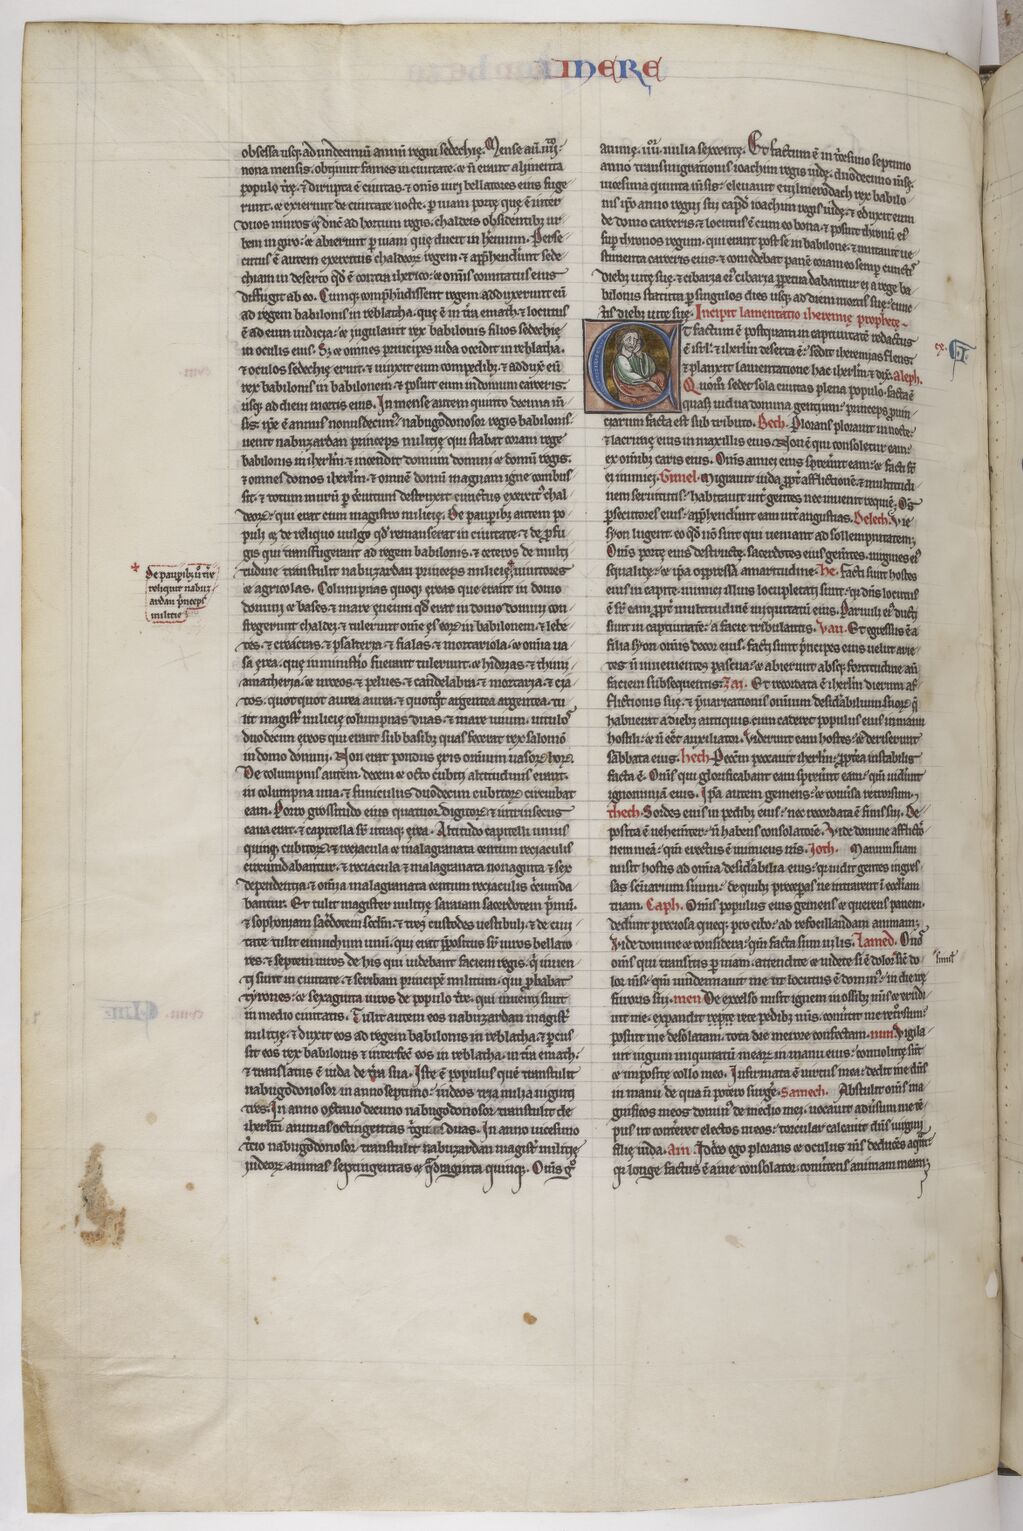 INERE
obsessa usq; ad undecimũ annũ regni sedechię. Mense aũ .iiii.
nona mensis. obtinuit fames in ciuitate. ⁊ ñ erant alimenta
populo tr̃ę. ⁊ dirupta ẽ ciuitas ⁊ om̃s uiri bellatores eius fuge
runt. ⁊ exierunt de ciuitate nocte. p uiam portę quę ẽ inter
duos muros ⁊ ducit ad hortum regis. chaldeis obsidentibʒ ur
bem in giro. ⁊ abierunt p uiam quę ducit in h̃emum. Perse
cutus ẽ autem exercitus chaldeoꝝ regem. ⁊ app̃hendert sede
chiam in deserto qd̃ ẽ contra iherico. ⁊ omnis comitatus eius
diffugit ab eo. Cumq; comp̃hendissent regem adduxerunt eũ
ad regem babilonis in reblatha. que ẽ in tr̃a emath. ⁊ locutus
ẽ ad eum iudicia. ⁊ iugulauit rex babilonis filios sedechię
in oculis eius. Sʒ ⁊ omnes principes iuda occidit in reblatha.
⁊ oculos sedechię eruit. ⁊ uinxit eum compedibʒ. ⁊ adduxit eũ
rex babilonis in babilonem. ⁊ posuit eum in domum carceris.
usq; ad diem mortis eius. In mense autem quinto decima m̃
sis. ip̃e ẽ annus nonusdecim' nabugodonosor regis babilonis
uenit nabuzardan princeps militię qui stabat coram rege
babilonis in iherlm̃. ⁊ incendit domum domini ⁊ domũ regis.
⁊ omnes domos iherlm̃. ⁊ omnẽ domũ magnam igne combus
sit. ⁊ totum murũ p circuitum destruxit cunctus exercit' chal
deoꝝ. qui erat cum magistro milicię. De paupibʒ autem po
puli ⁊ de reliquo uulgo qd̃ remanserat in ciuitate. ⁊ de pfu
gis qui transfugerant ad regem babilonis. ⁊ ceteros de multi
tudine transtulit nabuzardan princeps milicię. uinitores
⁊ agricolas. Columpnas quoq; ęreas que erant in domo
domini ⁊ bases. ⁊ mare ęneum qd̃ erat in domo domini con
fregerunt chaldei. ⁊ tulerunt om̃e ęs eoꝝ in babilonem. ⁊ lebe
tes. ⁊ creacras. ⁊ psalteria ⁊ fialas. ⁊ mortariola. ⁊ omnia ua
sa ęrea. que in ministerio fuerant tulerunt. ⁊ hydrias. ⁊ thimi
amatheria. ⁊ urceos ⁊ pelues. ⁊ candelabra ⁊ mortaria. ⁊ cia
tos. quotquot aurea aurea. ⁊ quotquot argentea argentea. tu
lit magist̃ milicię columpnas duas. ⁊ mare unum. uitulos
duodecim ęreos qui erant sub basibʒ quas fecerat rex salomõ
in domo domini. Non erat pondus ęris omnium uasoꝝ hoꝝ.
De columpnis autem. decem ⁊ octo cubiti altitudinis erant.
in columpna una. ⁊ funiculus duodecim cubitoꝝ circuibat
eam. Porro grossitudo eius quatuor digitoꝝ. ⁊ intrinsecus
caua erat. ⁊ capitella sr̃ utraq; ęrea. Altitudo capitelli unius
quinq; cubitoꝝ. ⁊ reciacula ⁊ malagranata centum reciaculis
circundabantur. ⁊ reciacula ⁊ malagranata nonaginta ⁊ sex
dependentia. ⁊ omnia malagranata centum reciaculis circunda
bantur. Et tulit magister milicię saraiam sacerdotem p̃imũ.
⁊ sophoniam sacerdotem secdm̃. ⁊ tres custodes uestibuli. ⁊ de ciui
tate tulit eunuchum unũ. qui erat p̃positus sr̃ uiros bellato
res. ⁊ septem uiros de his qui uidebant faciem regis. qui inuen
ti sunt in ciuitate. ⁊ scribam principẽ militum. qui probabat
tyrones. ⁊ sexaginta uiros de populo tr̃e. qui inuenti sunt
in medio ciuitatis. Tulit autem eos nabuzardan magist̃
milicię. ⁊ duxit eos ad regem babilonis in reblatha. ⁊ pcus
sit eos rex babilonis ⁊ interfecit eos in reblatha. in tr̃a emath.
⁊ translatus ẽ iuda de tr̃a sua. Iste ẽ populus quẽ transtulit
nabugodonosor in anno septimo. iudeos tria milia uiginti
tres. In anno octauo decimo nabugodonosor transtulit de
iherlm̃ animas octingentas triginta duas. In anno uicesimo
tercio nabugodonosor transtulit nabuzardan magist̃ milicię
iudeoꝝ animas septingentas ⁊ quadraginta quinq;. Om̃s g̊
De paupibʒ ũ tr̃e
reliquit nabuz
ardan p̃nceps
militie
animę. .iiii. milia sexcentę. Et factum ẽ in tricesimo septimo
anno transmigrationis ioachim regis iudę. duodecimo m̃se
uicesima quinta m̃sis. eleuauit euilmerodach rex babilo
nis ip̃o anno regni sui caput ioachim regis iudę. ⁊ eduxit eum
de domo carceris. ⁊ locutus ẽ cum eo bona. ⁊ posuit thronũ ei'
sup thronos regum. qui erant post se in babilone. ⁊ mutauit ue
stimenta carceris eius. ⁊ comedebat panẽ coram eo semp cunctis
diebʒ uitę suę. ⁊ cibaria ei' cibaria ppetua dabantur ei a rege ba
bilonis statuta p singulos dies usq; ad diem mortis suę. cunc
tis diebʒ uitę suę. Incipit lamentatio iheremię prophetę.
Et factum ẽ postquam in captiuitatẽ redactus
ẽ isrl̃. ⁊ iherlm̃ deserta ẽ. sedit iheremias flens
⁊ planxit lamentatione hac iherlm̃ ⁊ dix̃. Aleph.
Quom̊ sedet sola ciuitas plena populo. facta ẽ
quasi uidua domina gentium. princeps puin
ciarum facta est sub tributo. Beth. Plorans plorauit in nocte.
⁊ lacrimę eius in maxillis eius. Non ẽ qui consoletur eam.
ex omnibʒ caris eius. Om̃s amici eius spreuert eam. ⁊ facti st̃
ei inimici. Gimel. Migrauit iuda ppt̃ afflictionẽ. ⁊ multitudi
nem seruitutis. habitauit int̃ gentes nec inuenit requiẽ. Om̃s
psecutores eius. app̃hendert eam int̃ angustias. Deleth. Vię
syon lugent. eo qd̃ nõ sint qui ueniant ad sollempnitatem.
Om̃s portę eius destructę. sacerdotes eius gementes. uirgines ei'
squalidę. ⁊ ip̃a opp̃ssa amaritudine. he. Facti sunt hostes
eius in capite. inimici illius locupletati sunt. qr dñs locutus
ẽ sr̃ eam. ppt̃ multitudinẽ iniquitatũ eius. Paruuli ei' ducti
sunt in captiuitatẽ. a facie tribulantis. Vau. Et egressus ẽ a
filia syon omnis decor eius. facti sunt p̃ncipes eius uelut arie
tes ñ inuenientes pascua. ⁊ abierunt absq; fortitudine añ
faciem subsequentis. Zai. Et recordata ẽ iherlm̃ dierum af
flictionis suę. ⁊ p̃uaricationis omnium desiderabilium suoꝝ quę
habuerat a diebʒ antiquis. cum caderet populus eius in manu
hostili. ⁊ ñ eet auxiliator. Viderunt eam hostes. ⁊ deriserunt
sabbata eius. heth. Pecc̃m peccauit iherlm̃. pptea instabilis
facta ẽ. Om̃s qui glorificabant eam spreuert eam. qm̃ uiderunt
ignominiã eius. Ip̃a autem gemens. ⁊ conuersa retrorsum.
theth. Sordes eius in pedibʒ eius. nec recordata ẽ finis sui. De
posita ẽ uehementer. ñ habens consolatorẽ. Vide domine afflictio
nem meã. qm̃ erectus ẽ inimicus m̃s. Ioth. Manum suam
misit hostis ad omnia desiderabilia eius. qr uidit gentes ingres
sas sc̃uarium suum. de quibʒ p̃ceperas ne intrarent in ecc̃liam
tuam. Caph. Om̃is populus eius gemens ⁊ querens panem.
dederunt preciosa queq; pro cibo. ad refocillandam animam.
Vide domine ⁊ considera. qm̃ facta sum uilis. Lamed. O uos
om̃s qui transitis p uiam. attendite ⁊ uidete si ẽ dolor sic̃ do
lor m̃s. qm̃ uindemiauit me ut locutus ẽ domin'. in die irę
furoris sui. men. De excelso misit ignem in ossibʒ m̃s ⁊ erudi
uit me. expandit rete pedibʒ m̃s. conuertit me retrorsum.
posuit me desolatam. tota die merore confectam. nun. Vigila
uit iugum iniquitatũ mearꝝ in manu eius. conuolutę sunt
⁊ impositę collo meo. Infirmata ẽ uirtus mea. dedit me dñs
in manu de qua ñ potero surgẽ. Samech. Abstulit om̃s ma
gnificos meos domin' de medio mei. uocauit aduersum me tẽ
pus ut contereret electos meos. torcular calcauit dñs uirgini
filię iuda. Ain. Idcirco ego plorans ⁊ oculus m̃s deducẽs aquã.
qr longe factus ẽ a me consolator. conuertens animam meam.